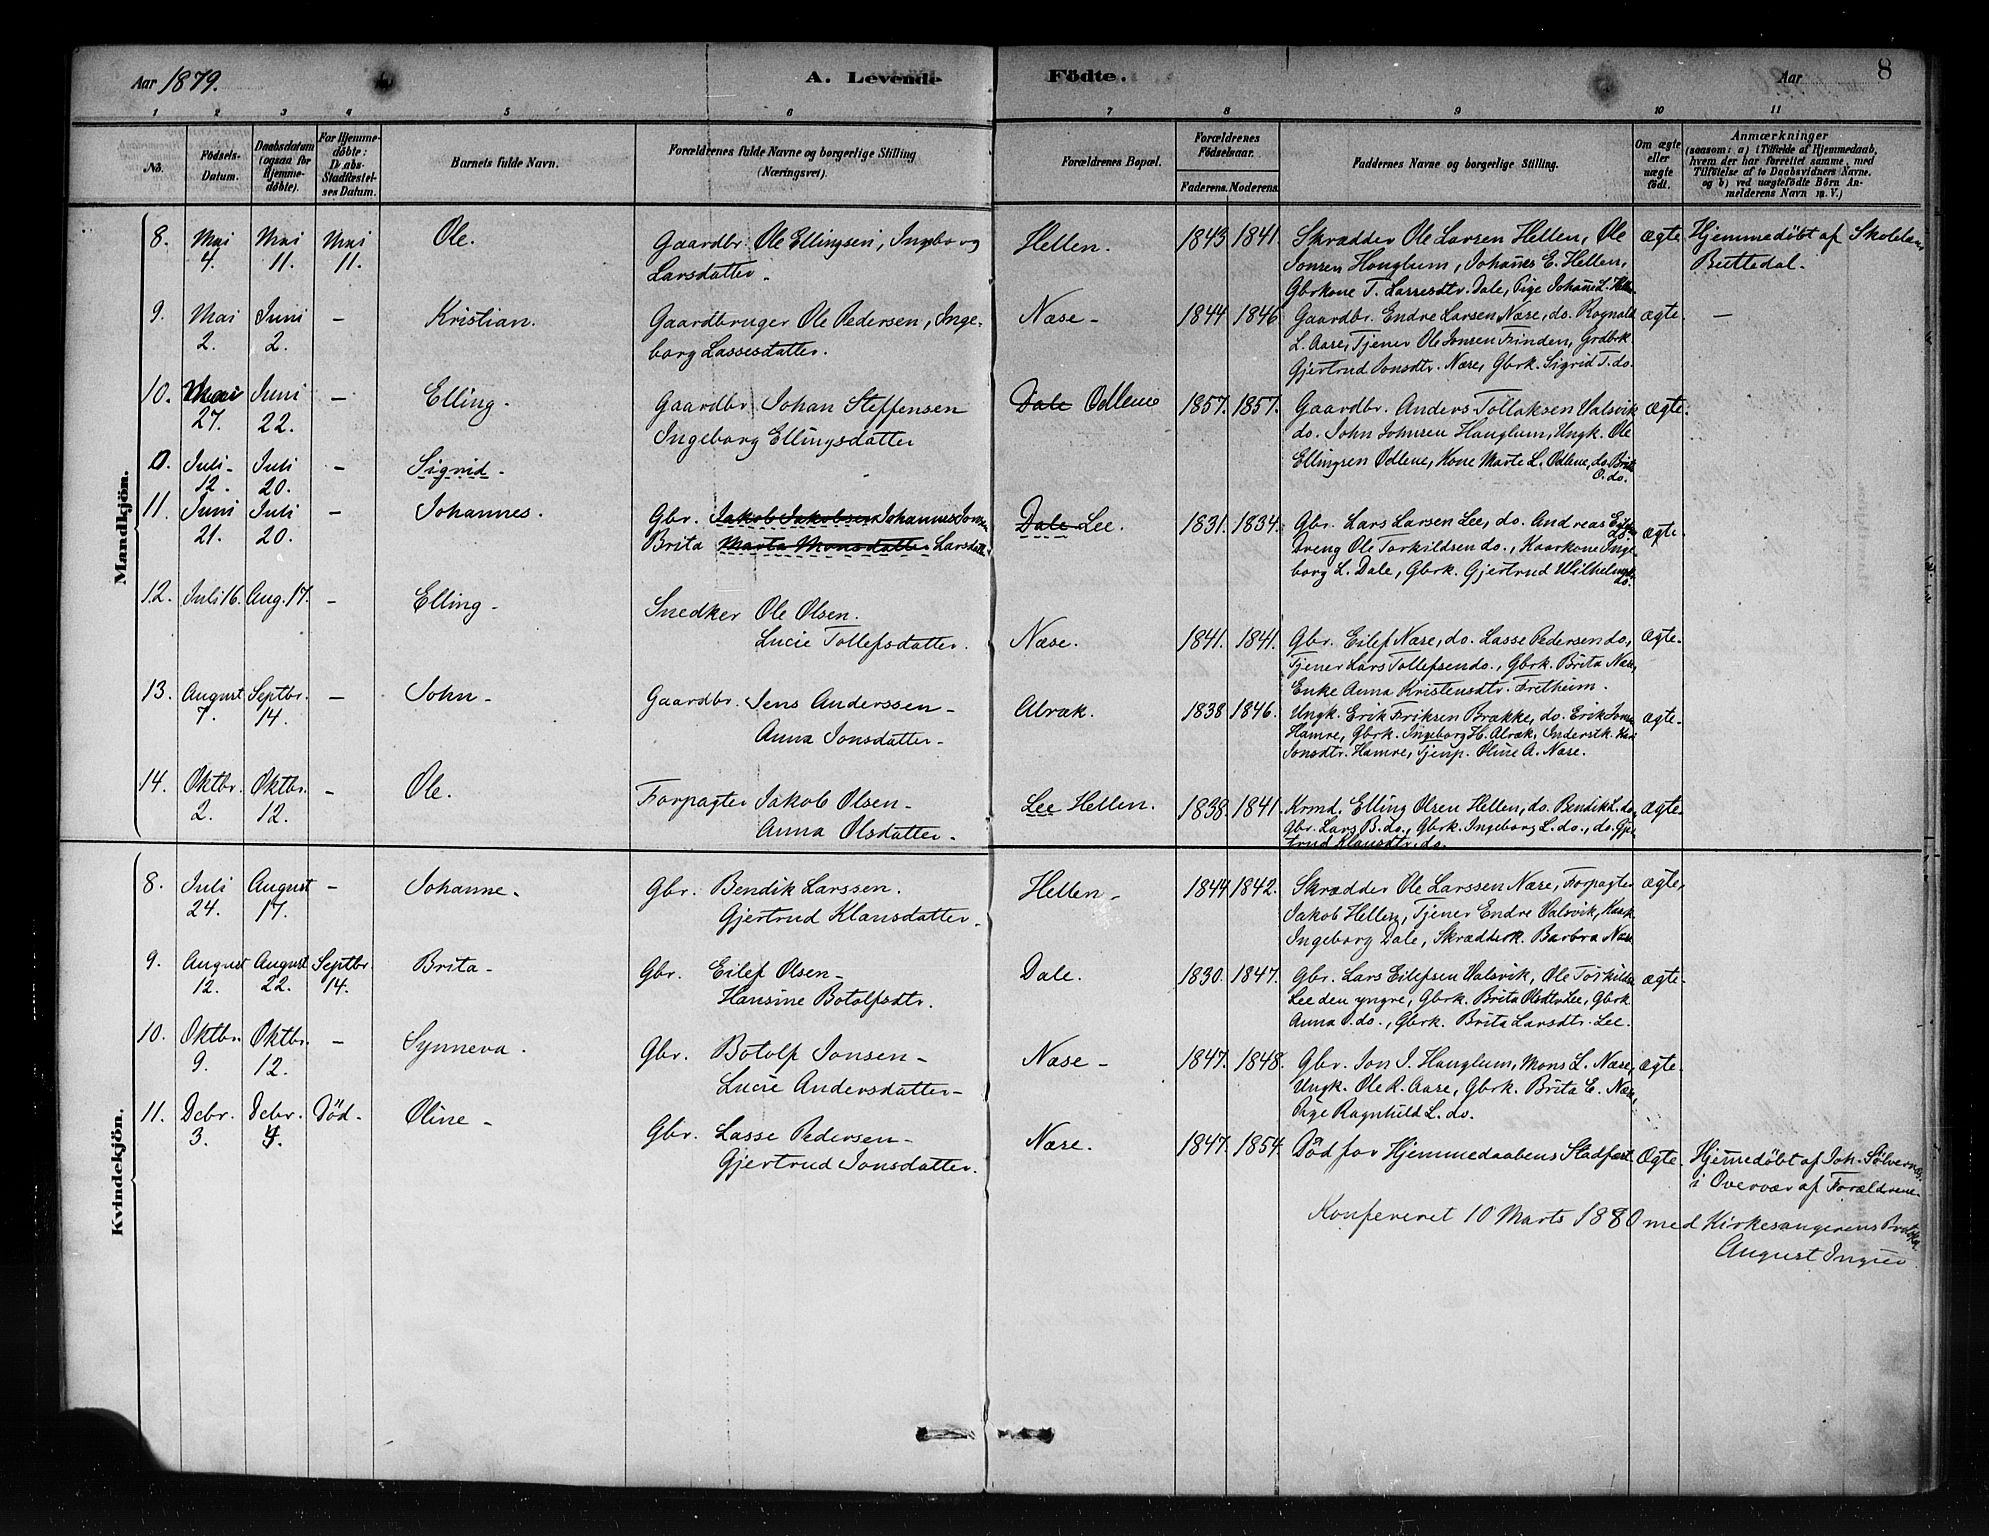 Aar 1879.
A. Levende
Födte.
Aar
8
1 2 3 4 5 6 7 8 9 10 11
No.
Födsels-
Datum.
Daabsdatum
(ogsaa for
Hjemme-
døbte).
For Hjemme-
døbte:
Daabs-
Stadfæstel-
ses Datum.
Barnets fulde Navn.
Forældrenes fulde Navne og borgerlige Stilling
(Næringsvei).
Forældrenes Bopæl.
Forældrenes
Födselsaar.
Faderens. Moderens.
Faddernes Navne og borgerlige Stilling.
Om ægte
eller
uægte
födt.
Anmærkninger
(saasom: a) i Tilfælde af Hjemmedaab,
hvem der har forrettet samme, med
Tilföielse af to Daabsvidners Navne,
og b) ved uægtefödte Börn An-
melderens Navn m. V.)
Mandkjön.
8. Mai Mai Mai Ole. Gaardbr. Ole Ellingsen, Ingeborg Hellen. 1843 1841. Skrædder Ole Larsen Hellen, Ole ægte Hjemmedøbt af
4. 11. 11. Larsdatter. Jonsen Hauglum, Johannes E. Hellen, Buttedal.
Gbrkone T. Lassesdtr. Dale, Pige Johanne L.
9. Mai Juni – Kristian. Gaardbruger Ole Pedersen, Inge- Næse – 1844 1846 Gaardbr. Endre Larsen Næse, do. Rognald ægte. –
2. 2. borg Lassesdatter. L. Aare, Tjener Ole Jonsen Frinden, Grdbrk
Gjertrud Jonsdtr. Næse, Gbrk. Sigrid T. do.
10. Mai Juni – Elling. Gaardbr. Johan Steffensen Dale Odlene 1857. 1857. Gaardbr. Anders Tollaksen Valsvik ægte.
27. 22. Ingeborg Ellingsdatter do. John Johnsen Hauglum, Ungk. Ole
0. Juli Juli – Sigrid. Ellingsen Odlene, Kone Marte L. Odlene, do. Brita
12. 20. O. do.
11. Juni Juli – Johannes. Gbr. Jakob Jakobsen Johannes Jonsen Dale Lee. 1831. 1834. Gbr. Lars Larsen Lee, do. Andreas ægte.
21. 20. Brita Marta Monsdatter Larsdatt. Dreng Ole Torkildsen do., Kaarkone Inge-
borg L. Dale, Gbrk. Gjertrud
do.
12. Juli 16. Aug. 17. – Elling – Snedker Ole Olsen.
Lucie Tollefsdatter. Næse. 1841. 1841. Gbr. Eilef Næse, do. Lasse Pedersen do., ægte.
Tjener Lars Tollefsen do., Gbrk. Brita Næse,
Enke Anna Kristensdtr. Fretheim.
13. August Septbr. – John – Gaardbr. Jens Anderssen – Alræk. 1838 1846. Ungk. Erik Eriksen Brække, do. Erik Jonsen ægte.
7. 14. Anna Jonsdatter – Hamre, Gbrk. Ingeborg H. Alræk, Inderstk.
Jonsdtr. Hamre, Tjenp. Oline A. Næse.
14. Oktbr. Oktbr. – Ole. Forpagter Jakob Olsen – Lee Hellen. 1838. 1841. Krmd. Elling Olsen Hellen, do. Bendik L. do., ægte.
2. 12. Anna Olsdatter. Gbr. Lars B. do., Gbrk. Ingeborg L. do., do. Gjer-
trud Klausdtr. do.
Kvindekjön.
8. Juli August – Johanne – Gbr. Bendik Larssen. Hellen – 1844. 1842. Skrædder Ole Larssen Næse, Forpagter ægte,
24. 17. Gjertrud Klausdatter. Jakob Hellen, Tjener Endre Valsvik, Kaark.
Ingeborg Dale, Skrædderk. Barbra Næse
9. August August Septbr. Brita – Gbr. Eilef Olsen – Dale. 1830. 1847. Gbr. Lars Eilefsen Valsvik, Ole Torkilds. ægte.
12. 22. 14. Hansine Botolfsdtr. Lee den yngre, Gbrk. Brita Olsdtr Lee, Gbrk.
Anna P. do., Gbrk. Brita Larsdtr. Lee.
10. Oktbr. Oktbr. – Synneva. Gbr. Botolf Jonsen – Næse – 1847. 1848. Gbr. Jon J. Hauglum, Mons L. Næse, ægte.
9. 12. Lucie Andersdatter – Ungk. Ole R. Aare, Gbrk. Brita E. Næse,
Pige Ragnhild L. do.
11. Debr. Debr. Död. Oline – Gbr. Lasse Pedersen – Næse. 1847. 1854. Död for Hjemmedaabens Stadfæst. Ægte. Hjemmedøbt af Joh. Sølvernes.
3. 4. Gjertrud Jonsdatter. i Overvær af Forældrene.
Konfereret 10 Marts 1880 med Kirkesangerens
August